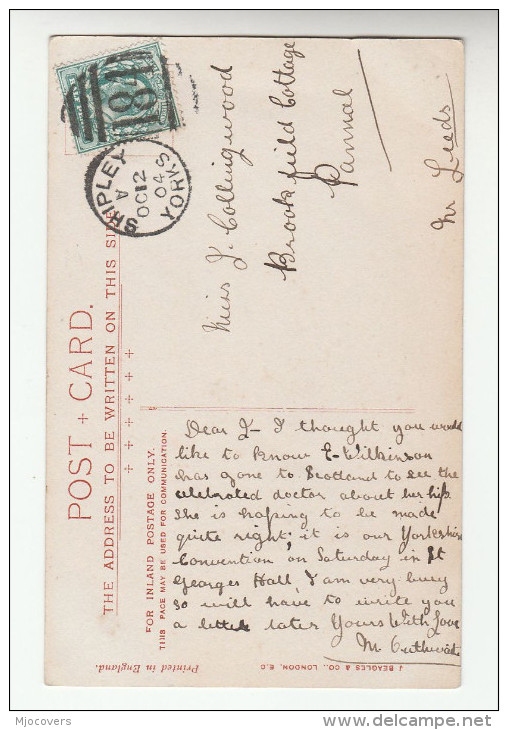 POST + CARD.
THE ADDRESS TO BE WRITTEN ON THIS SIDE
SHIPLEY
A
OC 12
04
YORKS
Miss J. Collingwood
Brookfield Cottage
Pannal
Nr Leeds
FOR INLAND POSTAGE ONLY.
THIS PACE MAY BE USED FOR COMMUNICATION.
Dear J- I thought you would
like to know E-Wilkinson
has gone to Scotland to see the
celebrated doctor about her hip
she is hoping to be made
quite right; it is our Yorkshire
Convention on Saturday in St
Georges Hall, I am very busy
so will have to write you
a letter later Yours With Love
M Outhwaite
Printed in England.
J BEAGLES & CO., LONDON, E.C
Mjocovers
www.delcampe.net